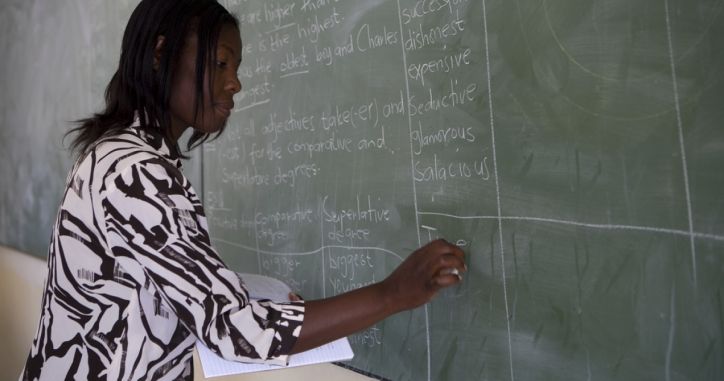 are higher than
is the highest.
the oldest boy and Charles
all adjectives take (-er) and
(-est) for the comparative and
Superlative degrees.
degree Comparative degree Superlative degree
bigger biggest
successful
dishonest
expensive
Seductive
glamorous
Salacious